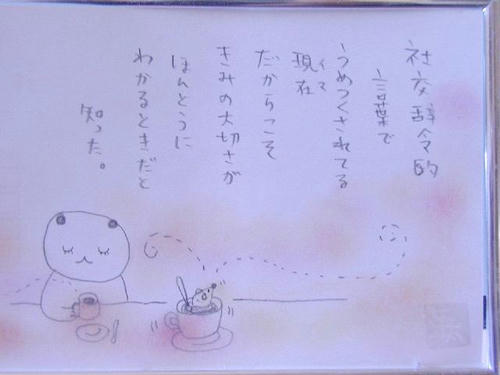 社交辞令的
言葉で
うめつくされてる
現在
イマ
だからこそ
きみの大切さが
ほんとうに
わかるときだと
知った。